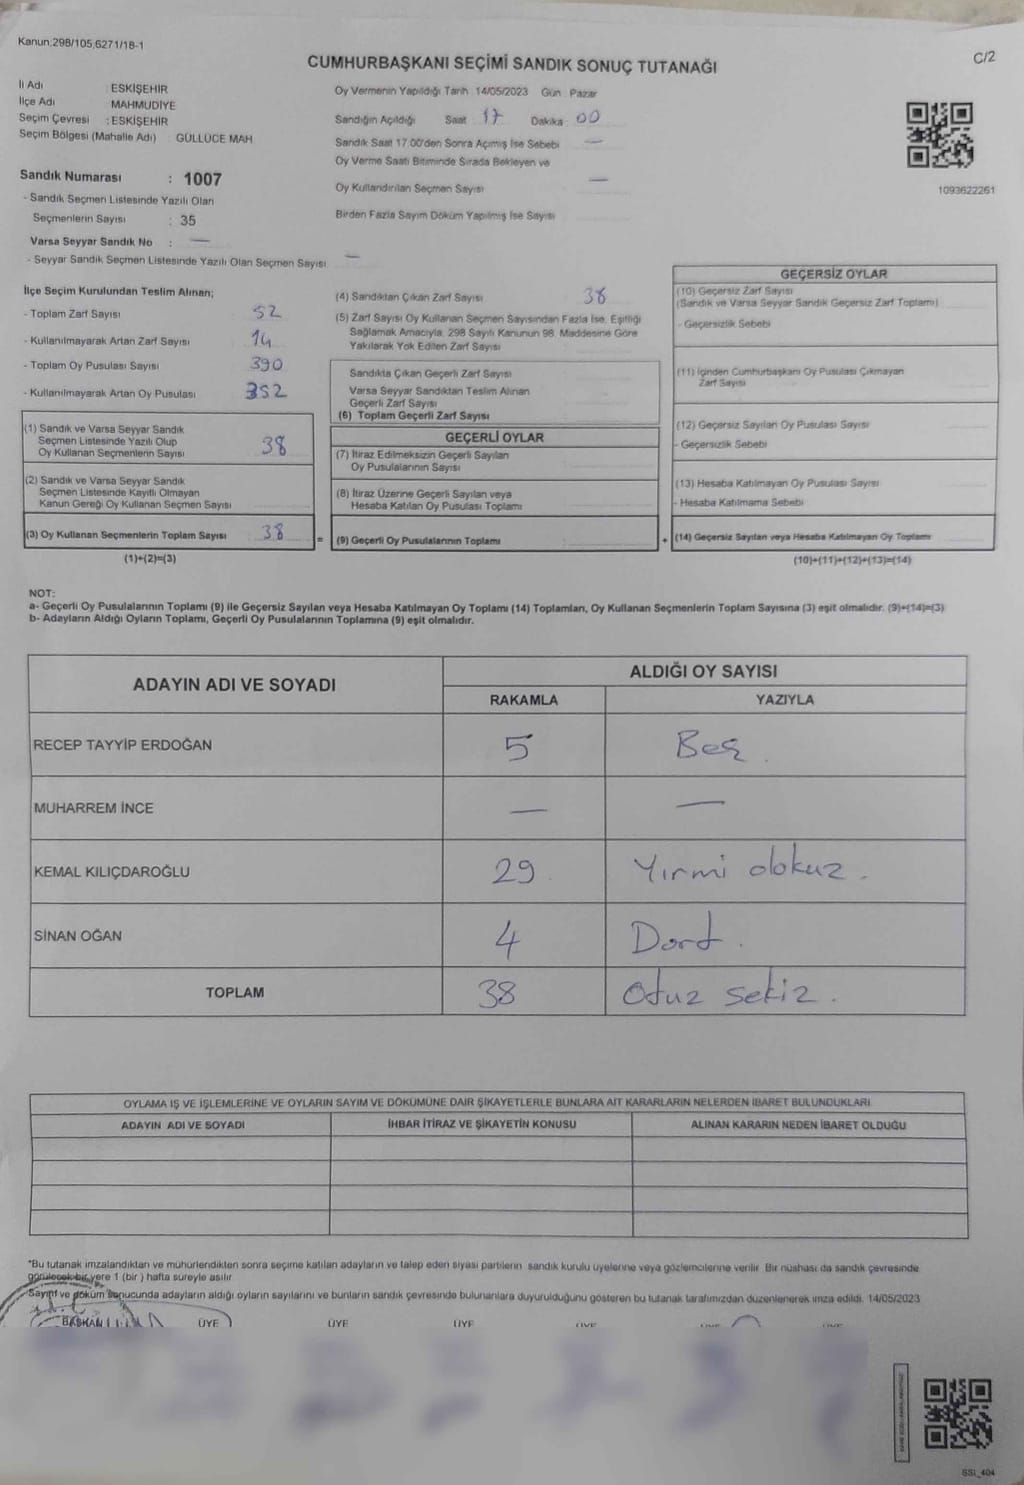 Kanun:298/105,6271/18-1
C/2
CUMHURBAŞKANI SEÇİMİ SANDIK SONUÇ TUTANAĞI
İl Adı : ESKİŞEHİR
İlçe Adı : MAHMUDİYE
Seçim Çevresi : ESKİŞEHİR
Seçim Bölgesi (Mahalle Adı) : GÜLLÜCE MAH
Sandık Numarası : 1007
- Sandık Seçmen Listesinde Yazılı Olan
Seçmenlerin Sayısı : 35
Varsa Seyyar Sandık No : —
- Seyyar Sandık Seçmen Listesinde Yazılı Olan Seçmen Sayısı —
Oy Vermenin Yapıldığı Tarih : 14/05/2023 Gün : Pazar
Sandığın Açıldığı Saat 17 Dakika : 00
Sandık Saat 17:00'den Sonra Açılmış İse Sebebi —
Oy Verme Saati Bitiminde Sırada Bekleyen ve
Oy Kullandırılan Seçmen Sayısı —
Birden Fazla Sayım Döküm Yapılmış İse Sayısı
1093622261
İlçe Seçim Kurulundan Teslim Alınan;
- Toplam Zarf Sayısı 52
- Kullanılmayarak Artan Zarf Sayısı 14
- Toplam Oy Pusulası Sayısı 390
- Kullanılmayarak Artan Oy Pusulası 352
(1) Sandık ve Varsa Seyyar Sandık
Seçmen Listesinde Yazılı Olup
Oy Kullanan Seçmenlerin Sayısı 38
(2) Sandık ve Varsa Seyyar Sandık
Seçmen Listesinde Kayıtlı Olmayan
Kanun Gereği Oy Kullanan Seçmen Sayısı
(3) Oy Kullanan Seçmenlerin Toplam Sayısı 38
(1)+(2)=(3)
(4) Sandıktan Çıkan Zarf Sayısı 38
(5) Zarf Sayısı Oy Kullanan Seçmen Sayısından Fazla İse, Eşitliği
Sağlamak Amacıyla, 298 Sayılı Kanunun 98. Maddesine Göre
Yakılarak Yok Edilen Zarf Sayısı
Sandıkta Çıkan Geçerli Zarf Sayısı
Varsa Seyyar Sandıktan Teslim Alınan
Geçerli Zarf Sayısı
(6) Toplam Geçerli Zarf Sayısı
GEÇERLİ OYLAR
(7) İtiraz Edilmeksizin Geçerli Sayılan
Oy Pusulalarının Sayısı
(8) İtiraz Üzerine Geçerli Sayılan veya
Hesaba Katılan Oy Pusulası Toplamı
= (9) Geçerli Oy Pusulalarının Toplamı +
GEÇERSİZ OYLAR
(10) Geçersiz Zarf Sayısı
(Sandık ve Varsa Seyyar Sandık Geçersiz Zarf Toplamı)
- Geçersizlik Sebebi
(11) İçinden Cumhurbaşkanı Oy Pusulası Çıkmayan
Zarf Sayısı
(12) Geçersiz Sayılan Oy Pusulası Sayısı
- Geçersizlik Sebebi
(13) Hesaba Katılmayan Oy Pusulası Sayısı
- Hesaba Katılmama Sebebi
(14) Geçersiz Sayılan veya Hesaba Katılmayan Oy Toplamı
(10)+(11)+(12)+(13)=(14)
NOT:
a- Geçerli Oy Pusulalarının Toplamı (9) ile Geçersiz Sayılan veya Hesaba Katılmayan Oy Toplamı (14) Toplamları, Oy Kullanan Seçmenlerin Toplam Sayısına (3) eşit olmalıdır. (9)+(14)=(3)
b- Adayların Aldığı Oyların Toplamı, Geçerli Oy Pusulalarının Toplamına (9) eşit olmalıdır.
ADAYIN ADI VE SOYADI
ALDIĞI OY SAYISI
RAKAMLA YAZIYLA
RECEP TAYYİP ERDOĞAN 5 Beş.
MUHARREM İNCE — —
KEMAL KILIÇDAROĞLU 29 Yirmi dokuz.
SİNAN OĞAN 4 Dört.
TOPLAM 38 otuz sekiz.
OYLAMA İŞ VE İŞLEMLERİNE VE OYLARIN SAYIM VE DÖKÜMÜNE DAİR ŞİKAYETLERLE BUNLARA AİT KARARLARIN NELERDEN İBARET BULUNDUKLARI
ADAYIN ADI VE SOYADI İHBAR İTİRAZ VE ŞİKAYETİN KONUSU ALINAN KARARIN NEDEN İBARET OLDUĞU
*Bu tutanak imzalandıktan ve mühürlendikten sonra seçime katılan adayların ve talep eden siyasi partilerin sandık kurulu üyelerine veya gözlemcilerine verilir. Bir nüshası da sandık çevresinde
görülecek bir yere 1 (bir ) hafta süreyle asılır.
Sayım ve döküm sonucunda adayların aldığı oyların sayılarını ve bunların sandık çevresinde bulunanlara duyurulduğunu gösteren bu tutanak tarafımızdan düzenlenerek imza edildi. 14/05/2023
BAŞKAN ÜYE ÜYE ÜYE ÜYE ÜYE ÜYE
SSI_404